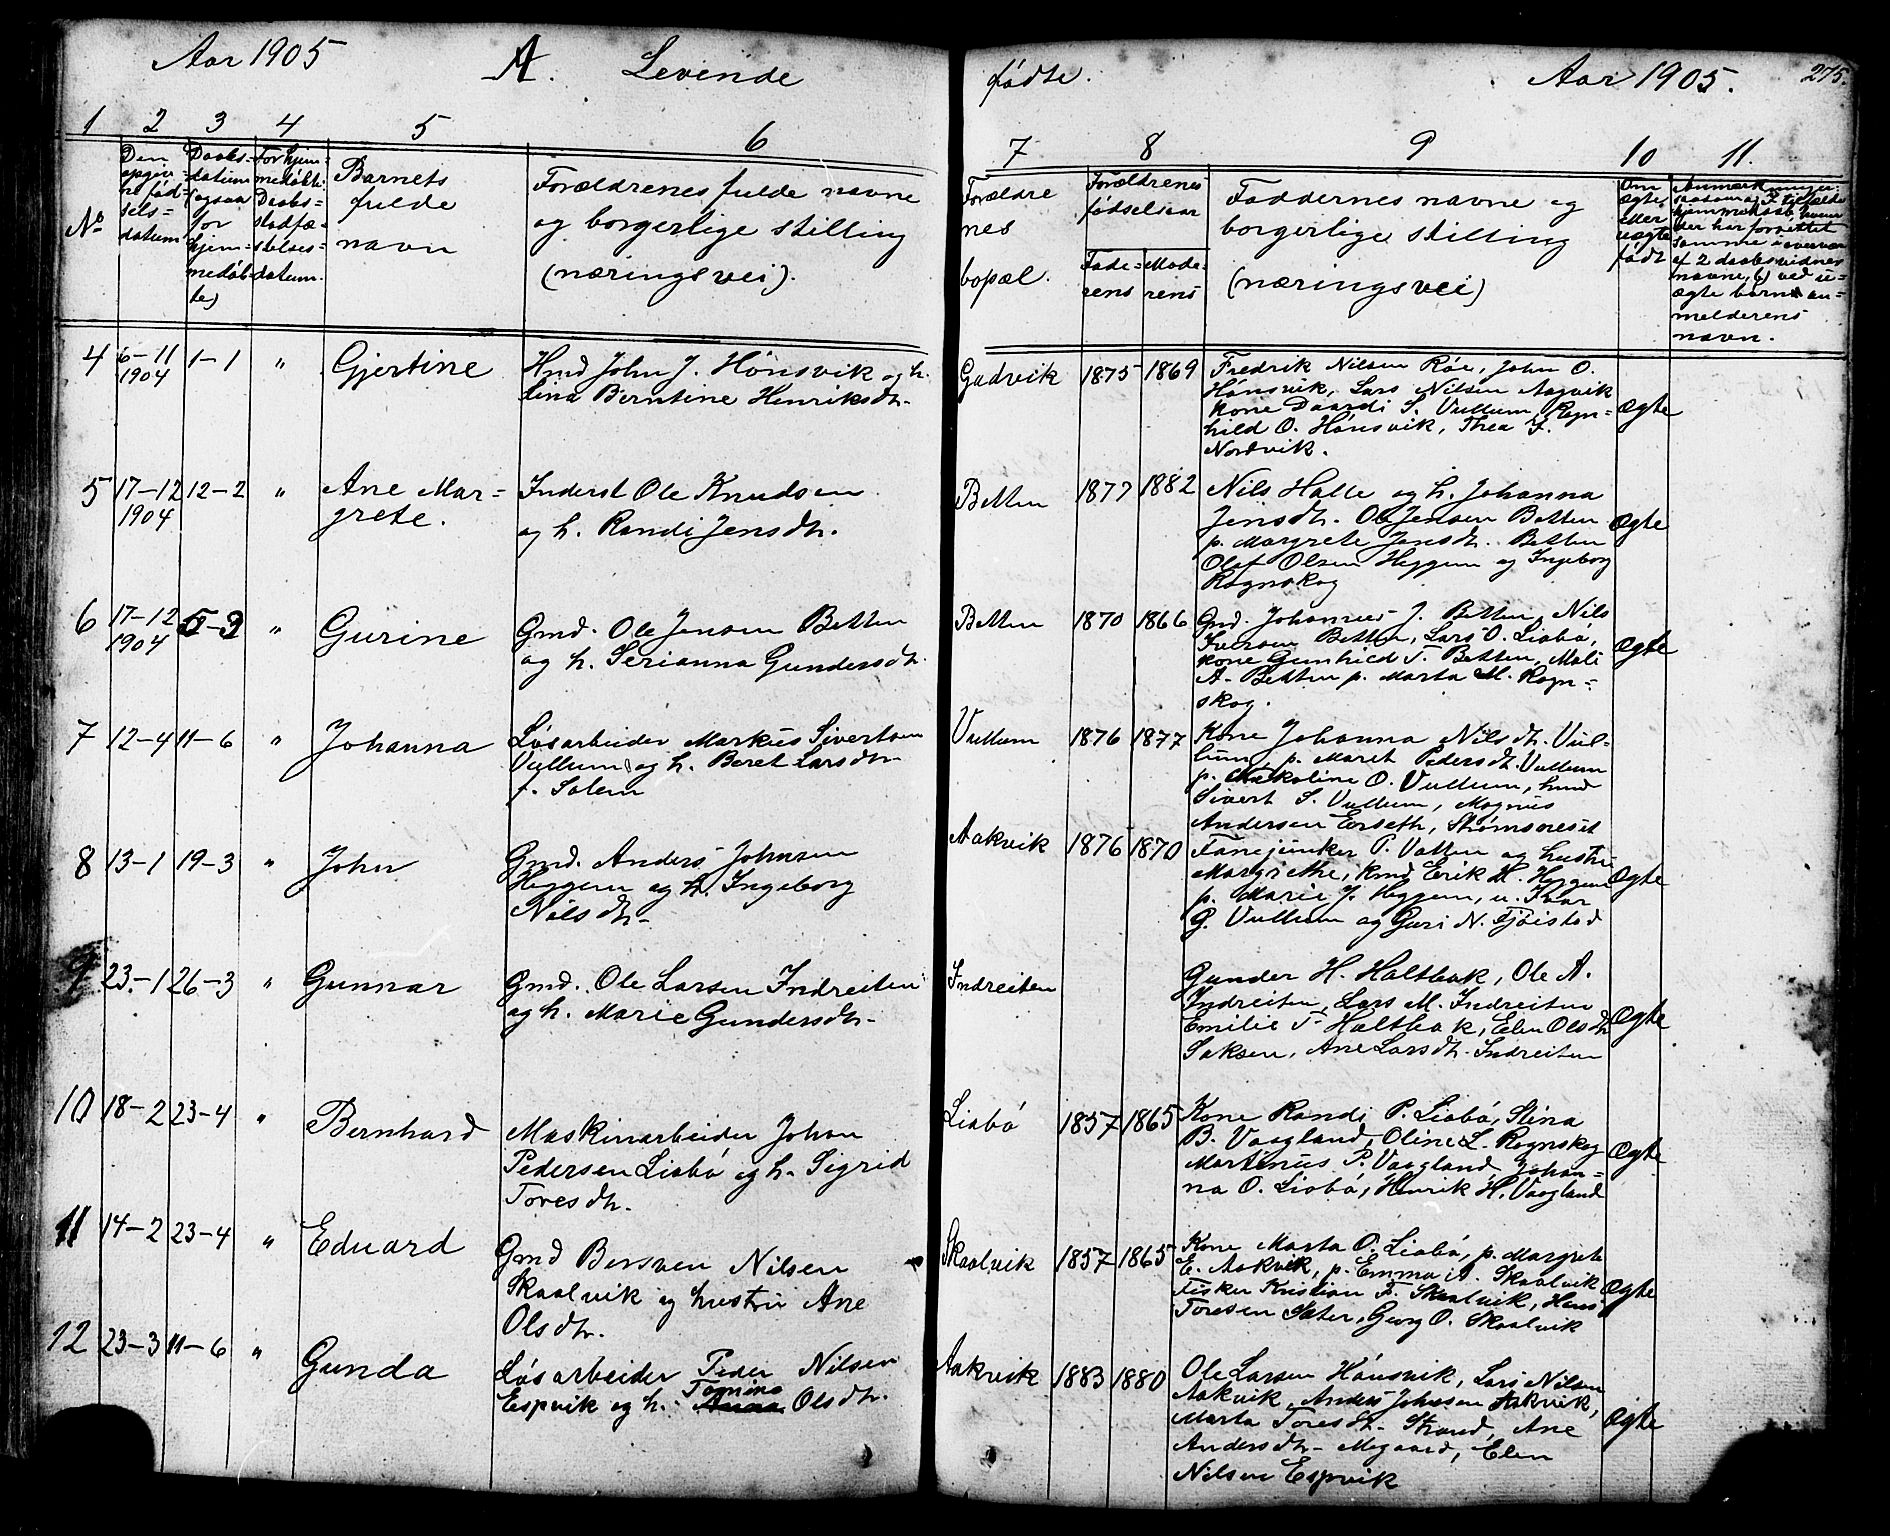 Aar 1905 A. Levende fødte. Aar 1905. 275.
1 2 3 4 5 6 7 8 9 10 11.
No
Den
opgiv-
ne fød-
sels-
datum
Daabs-
datum
(ogsaa
for
hjem-
medøb-
te)
For hjem-
medøbte:
Daabs-
stadfæ-
stelses-
datum.
Barnets
fulde
navn
Forældrenes fulde navne
og borgerlige stilling
(næringsvei).
Forældre
nes
bopæl.
Forældrenes
fødselsaar
Fade-
rens
Mode-
rens
Faddernes navne og
borgerlige stilling
(næringsvei)
Om
ægte
eller
uægte
født
Anmærkninger.
samme i overvær
af 2 daabsvidner
navne, b) ved u-
ægte børn an-
melderens
navn.
4 6-11 1904 1-1 " Gjertine
Hmd John J. Hønsvik og h.
Lina Berntine Henriksdtr.
Gudvik 1875 1869
Fredrik Nilsen Røe, John O.
Hønsvik, Lars Nilsen Aagvik
Kone Daardi S. Vullum, Ragn-
hild O. Hønsvik, Thea F.
Nordvik.
Ægte
5 17-12 1904 12-2 " Ane Mar-
grete.
Inderst Ole Knudsen
og h. Randi Jensdtr.
Betten 1877 1882
Nils Halle og h. Johanna
Jensdtr. Ole Jensen Betten
p. Margrete Jensdtr. Betten
Olaf Olsen Heggem og Ingeborg
Rognskog
Ægte
6 17-12 1904 5-3 " Gurine
Gmd. Ole Jensen Betten
og h. Serianna Gundersdtr.
Betten 1870 1866
Gmd. Johannes J. Betten, Nils
Iversen Betten, Lars O. Liabø,
kone Gunhild T. Betten, Mali
A. Betten p. Marta M. Rogn-
skog.
Ægte
7 12-4 11-6 " Johanna
Løsarbeider Markus Sivertsen
Vullum og h. Beret Larsdtr.
f. Solem
Vullum 1876 1877
Kone Johanna Nilsdtr. Vul-
lum, p. Marit Pedersdtr. Vullum
p. O. Vullum, hmd
Sivert S. Vullum, Magnus
Andersen Eerseth, Strømsøreset
8 13-1 19-3 " John
Gmd. Anders Johnsen
Heggem og h. Ingeborg
Nilsdtr.
Aakvik 1876 1870
Fanejunker P. Vatten og hustru
Margrethe, Kmd Erik H. Heggem
p. Marie J. Heggem, u. Ivar
G. Vullum og Guri N. Fjøistad
Ægte
9 23-1 26-3 " Gunnar
Gmd. Ole Larsen Indreiten
og h. Marie Gundersdtr.
Indreiten
Gunder H. Haltbak, Ole A.
Indreiten, Lars M. Indreiten
Emilie T. Haltbak, Elen Olsdtr
Saksen, Ane Larsdtr. Indreiten
Ægte
10 18-2 23-4 " Bernhard
Maskinarbeider Johan
Pedersen Liabø og h. Sigrid
Toresdtr.
Liabø 1857 1865
Kone Randi P. Liabø, Stina
B. Vaagland, Oline L. Rognskog
Martinus P. Vaagland, Johan-
na O. Liabø, Henrik H. Vaagland
Ægte
11 14-2 23-4 " Eduard
Gmd Bersven Nilsen
Skaalvik og hustru Ane
Olsdtr.
Skaalvik 1857 1865
Kone Marta O. Liabø, p. Margrete
E. Aakvik, p. Emma A. Skaalvik
Fisker Kristian F. Skaalvik, Hans
Toresen Sæter, Georg O. Skaalvik
Ægte
12 23-3 11-6 " Gunda
Løsarbeider Peder Nilsen
Espvik og h. Tomine Anna Olsdtr.
Aakvik 1883 1880
Ole Larsen Hønsvik, Lars Nilsen
Aakvik, Anders Johnsen Aakvik,
Marta Toresdtr. Strand, Ane
Andersdtr. Megaard, Elen
Nilsen Espvik
Ægte